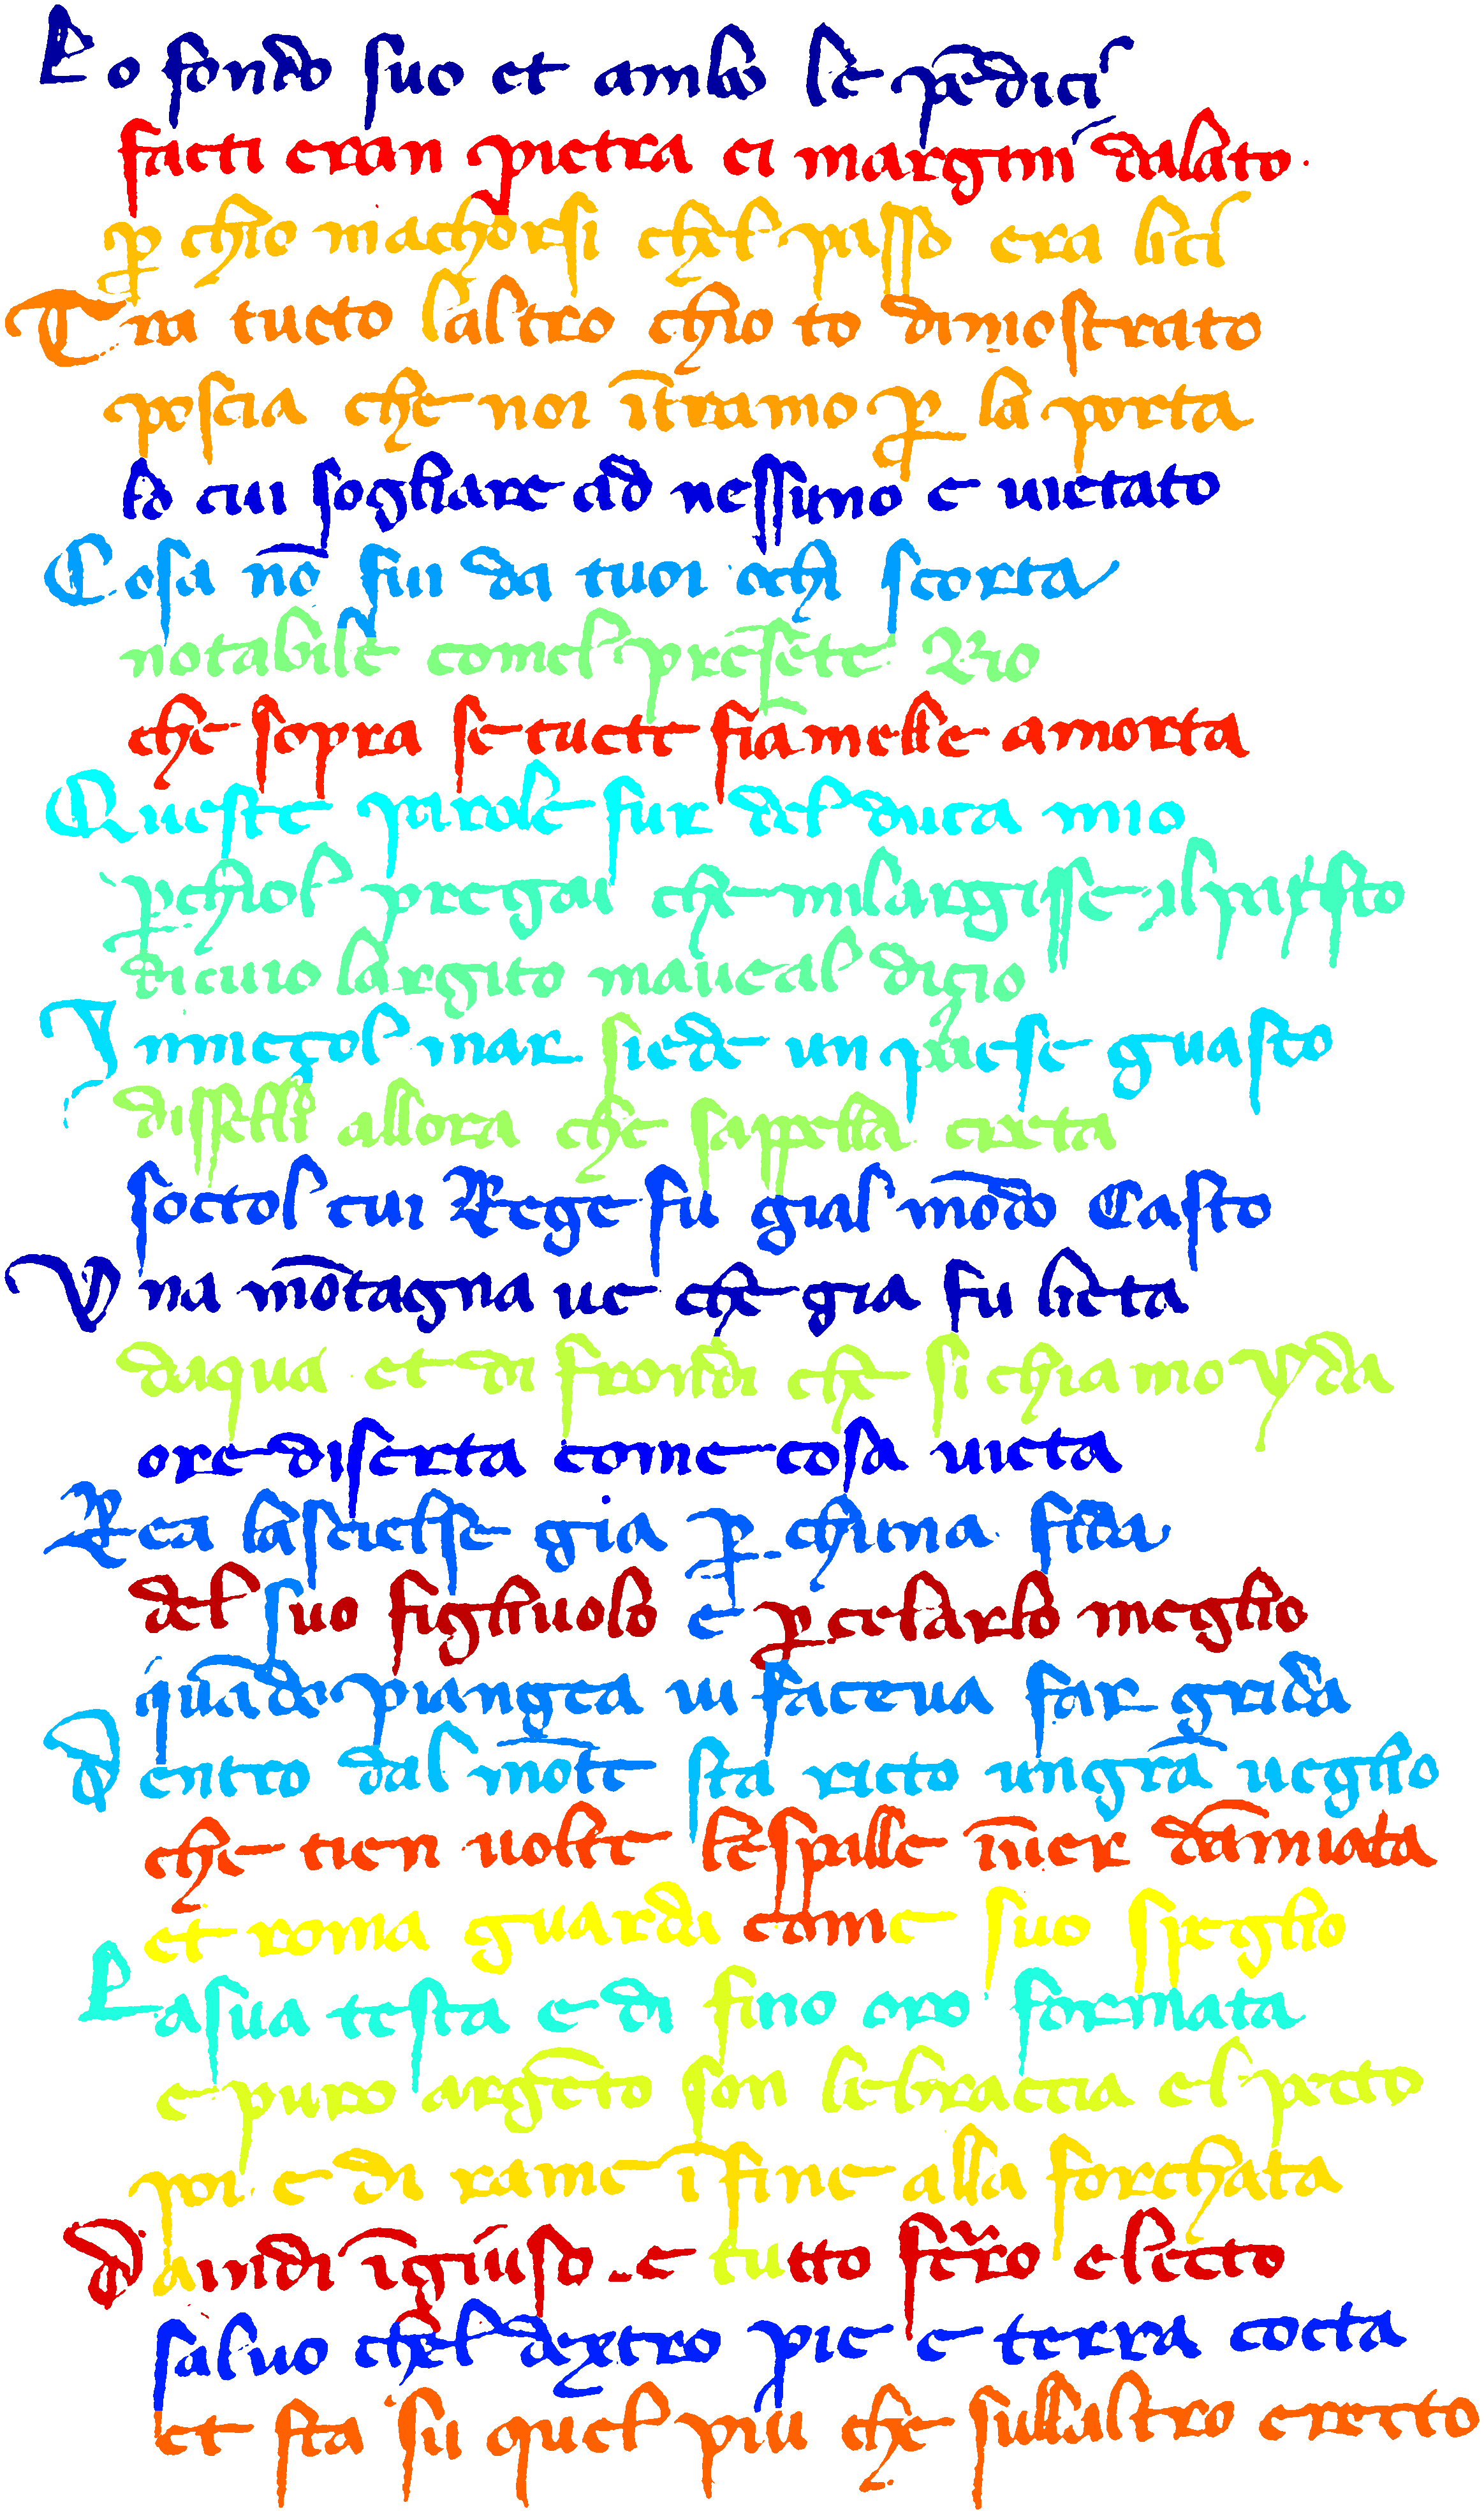 Lo fondo suo et ambo le pendici
facti eran pietra et i margini dallato.
p chio macchorsi chel passo era lici
Tra tucto laltro chio to dimostrato
poscia che noi ītrammo p la porta
lo cui sogliare ad nessuno e vietato
Cosa nō fu da tuoi ochi scorta
notabile comel presente rio
che sopra se tucte fiamelle amorta
Queste parole fur del duca mio
p chiol pregai che milargisse il pasto
di cui largito maveal disio
In mezol mar siede un paese guasto
disselli allora che sappella creta
soctol cui rege fu gial mōdo casto
Una mōtagna ve che gia fu lieta
dacqua et di frondi che si chiamo yda
ore diserta come cosa vieta
Rea la scelse gia p chuna fida
del suo figliuolo e p celarlo meglio
quādo piangea vi facea far grida
Dentro dal mōte sta recto un grā veglio
che tien volte le spalle īver damiata
et roma guarda come suo speglio
La sua testa e di fino oro formata
e puro argēto son le bracia el pecto
poi e di rame īfine alla forchata
Da indi īgiuso e tucto ferro electo
salvo chel dextro pie e terra cocta
et sta su quel piu che sullaltro erecto